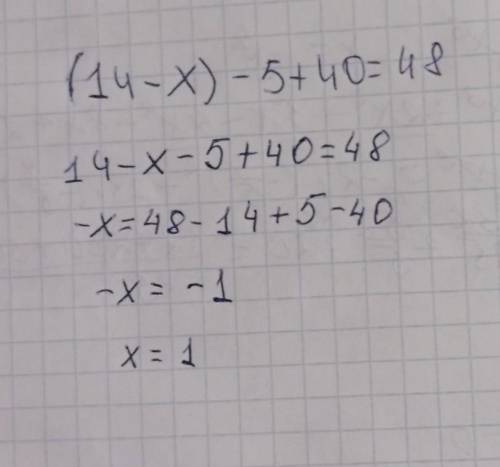 (14-x)-5+40=48
14-x-5+40=48
-x=48-14+5-40
-x=-1
x=1